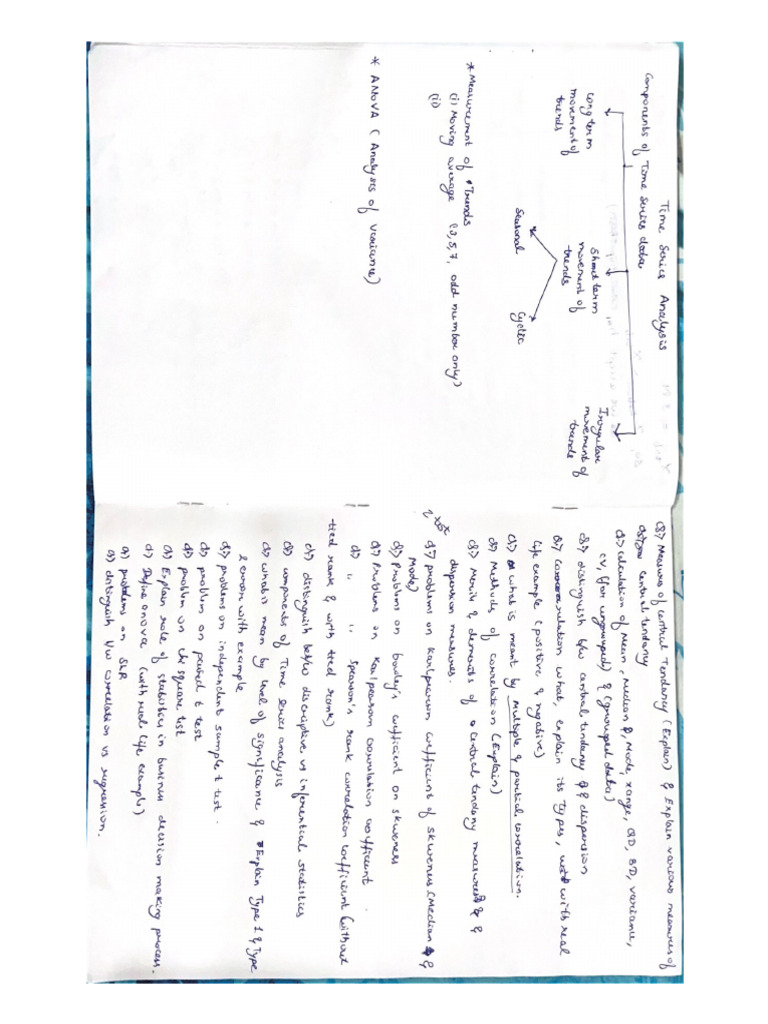 Time Series Analysis
Components of Time Series data
Long term
movement of
trends
Short term
movement of
trends
Irregular
movement of
trends
Seasonal
Cyclic
* Measurement of Trends
(i) Moving average (3,5,7, odd number only)
(ii)
* ANOVA (Analysis of variance)
Q) Measures of central Tendancy (Explain) & Explain various measures of
central tendancy
Q) calculation of Mean, Median &, Mode, range, QD, SD, variance,
CV, (for ungrouped) & (grouped data)
Q) distinguish b/w central tendancy & dispersion
Q) Correlation what, explain its types, with real
life example (positive & negative)
Q) what is meant by multiple & partial correlation.
Q) Methods of correlation (Explain)
Q) Merits & demerits of central tendancy measures &
dispersion measures.
Q) problems on karlpearson coefficient of skewness (Median &
Mode)
Q) Problems on bowley's coefficient on skewness
Q) Problems on Karlpearson correlation coefficient.
Q) " " spearson's rank correlation coefficient (without
tied rank & with tied rank)
Q) distinguish bet/w discriptive vs inferential statistics
Q) components of Time series analysis
Q) what is mean by level of significance & Explain Type 1 & Type
2 error with example
Q) problems on independent sample t test.
Q) problem on paired t test
Q) problem on chi square test
Q) Explain role of statistics in business decision making process.
Q) Define anova (with real life example)
Q) problems on SLR
Q) distinguish b/w correlation vs regression.